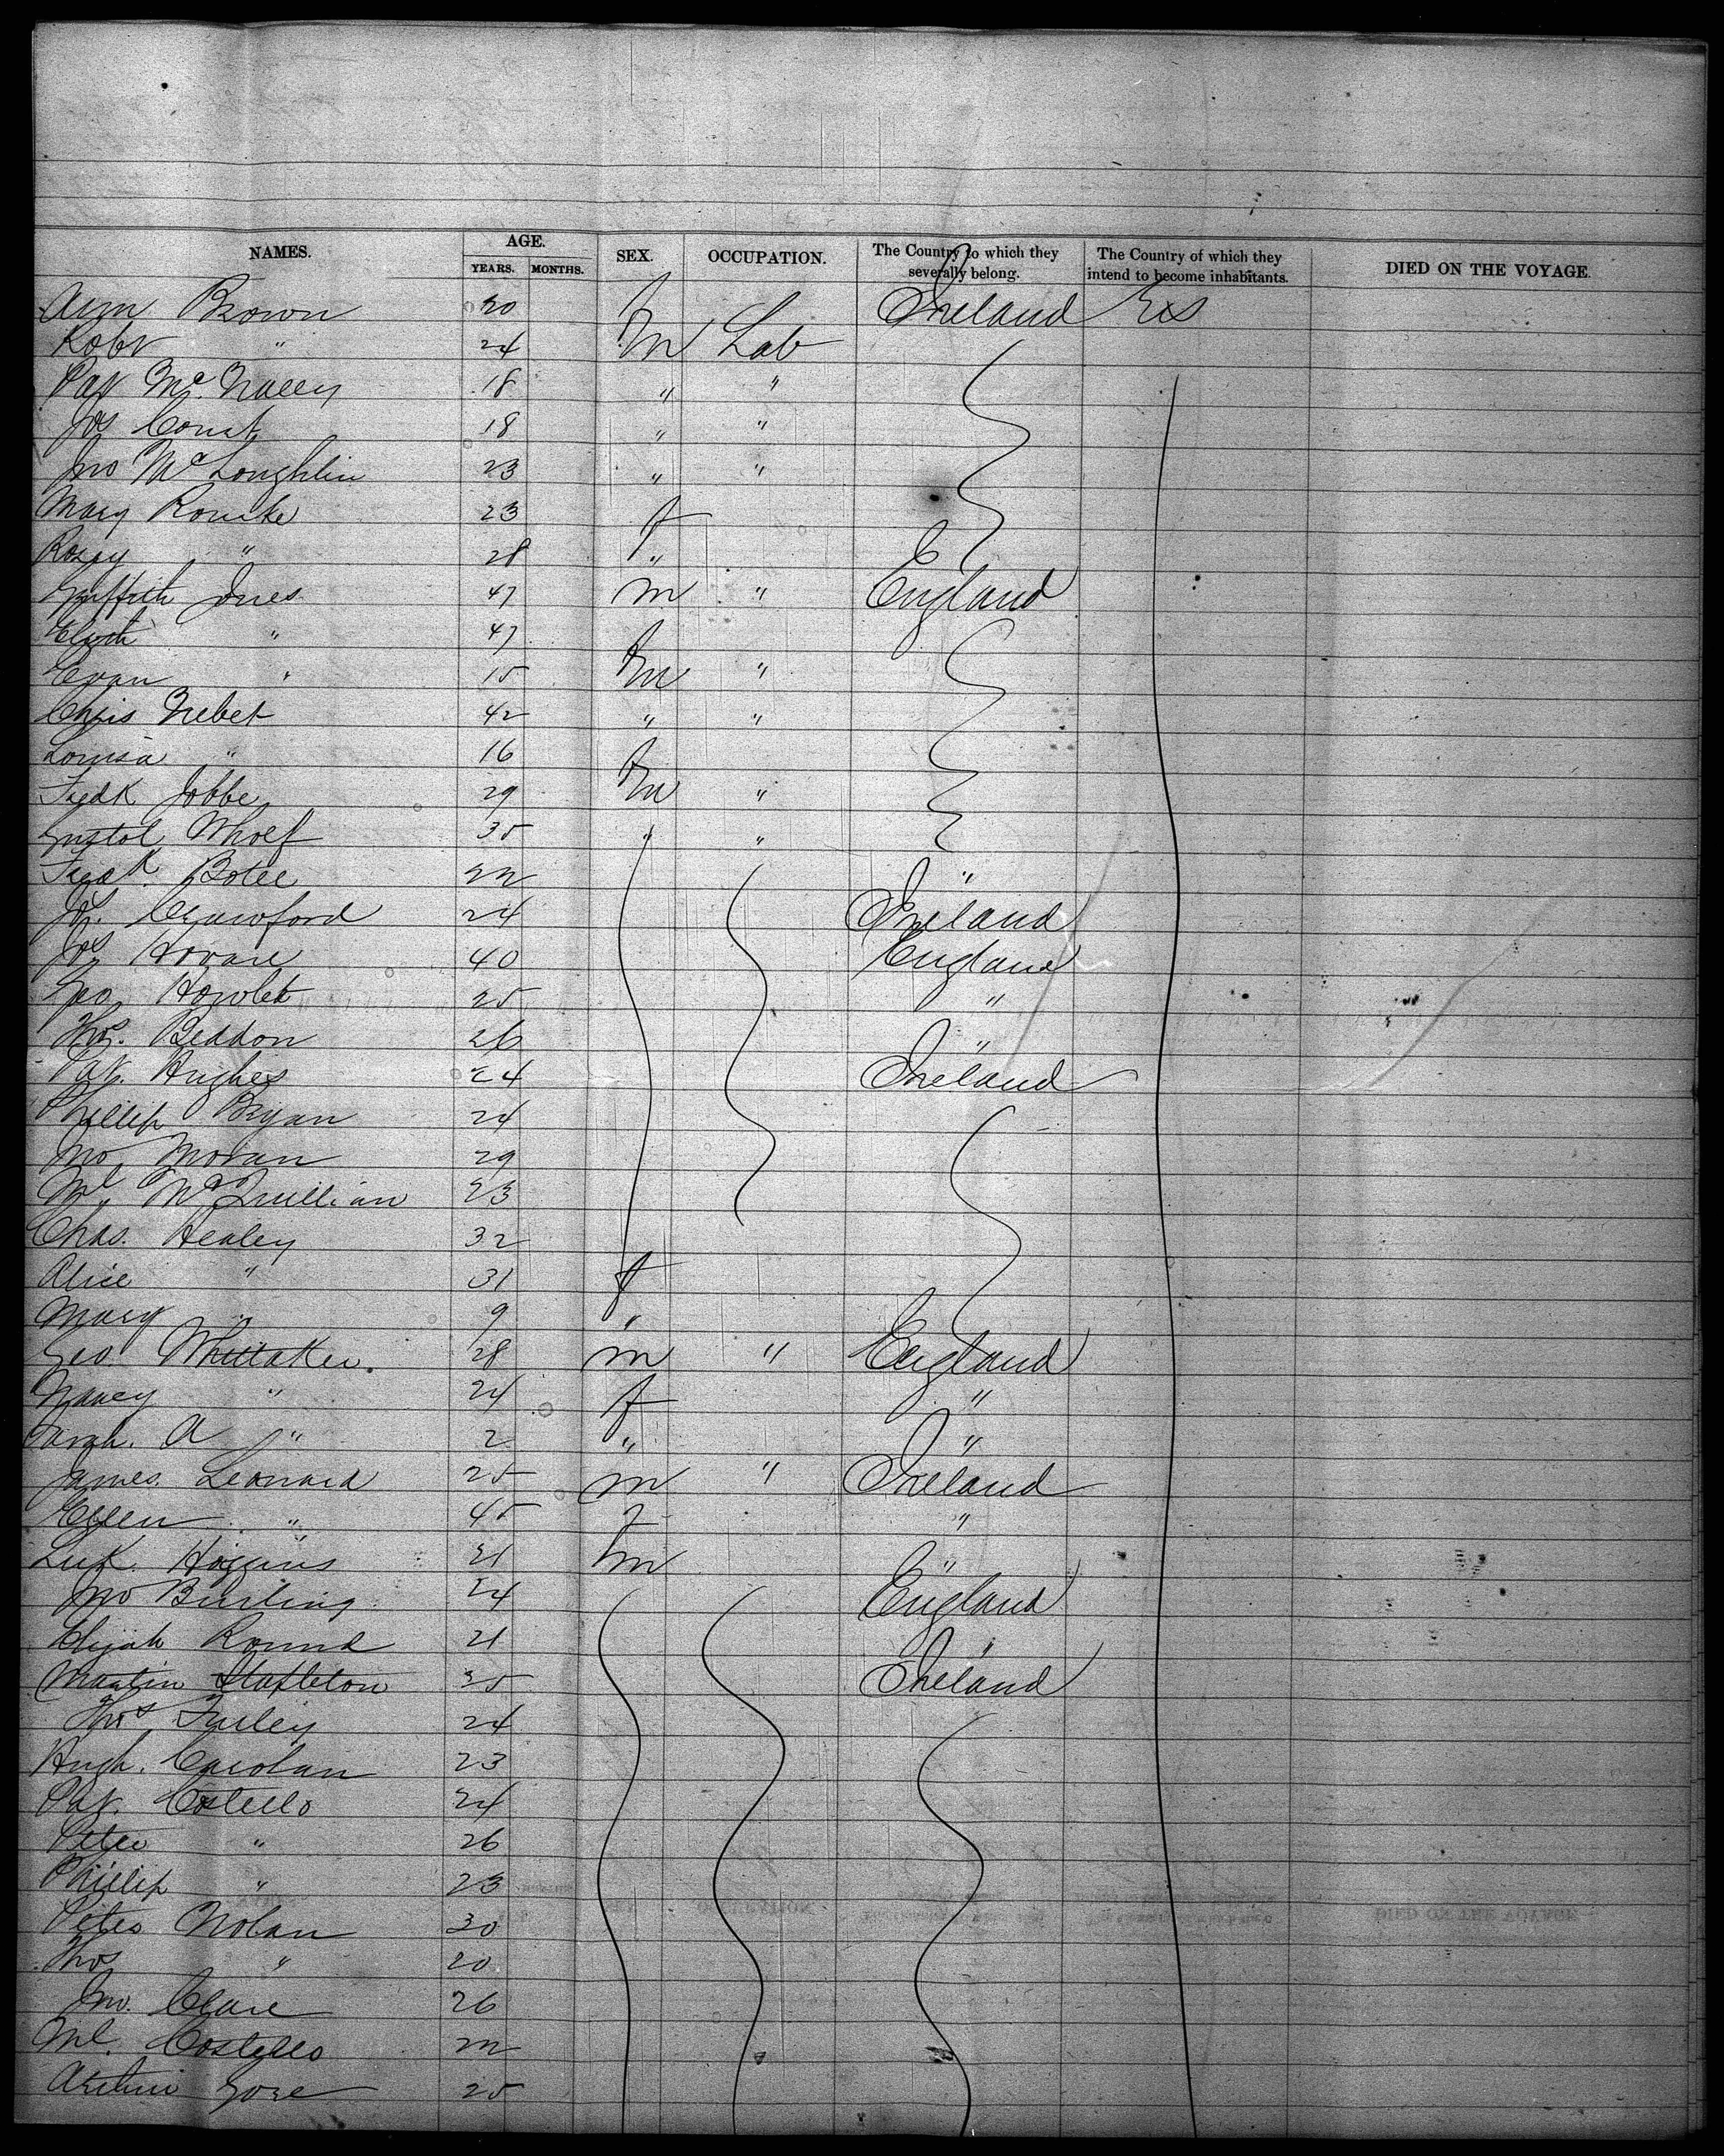 NAMES. AGE. SEX. OCCUPATION. The Country to which they severally belong. The Country of which they intend to become inhabitants. DIED ON THE VOYAGE.
YEARS. MONTHS.
Ann Brown 20 f Ireland
Robt " 24 M Lab
Pat McNally 18 " "
Jos 18 " "
Jno McLoughlin 23 " "
Mary Rourke 23 f
Rosey " 28 "
Griffith Jones 47 m " England
" 47 f
Evan " 15 m "
Chris 42 " "
Louisa " 16 f
Fredk 29 m "
35 " "
Fredk. 22 "
Crawford 24 Ireland
Jos 40 England
Geo Howlet 25 "
Thos. Beddon 26 "
Pat. Hughes 24 Ireland
Phillip Bryan 24
Jno Moran 29
Ml McQuillian 23
Chas. Healey 32
Alice " 31 f
Mary " 9 "
Geo Whittaker. 28 m " England
Nancy " 24 f "
Sarah. A " 2 " "
James Leonard 25 m " Ireland
Ellen " 45 f "
Luk. Higgins 21 m "
Jno Burling 24 England
Elijah Round 21 "
Martin Stapleton 35 Ireland
Thos 24
Hugh. Carolan 23
Pat. Costello 24
Peter " 26
Phillip " 23
Peter Nolan 30
Thos " 20
Jno. Clare 26
Ml. Costello 22
Arthur Gore 25